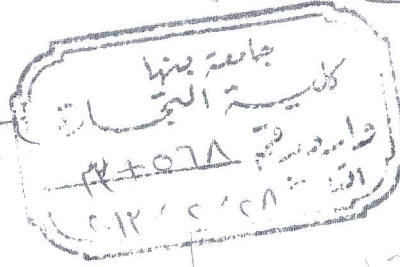 جامعة بنها
كلية التجارة
وارد رقم ٥٦٨
٢٠١٢ / ٢ / ٢٨